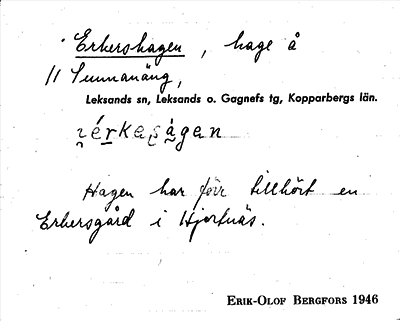 Erkershagen, hage å
11 Sunnanäng,
Leksands sn, Leksands o. Gagnefs tg, Kopparbergs län.
Hagen har förr tillhört en
Erkersgård i Hjortnäs.
ERIK-OLOF BERGFORS 1946